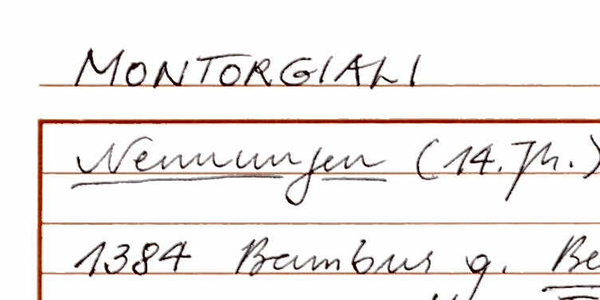 MONTORGIALI
Nennungen (14. Jh.)
1384 Bambus q. Be